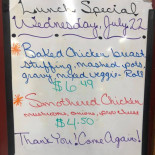 Lunch Special
Wednesday, July 22
Baked Chicken breast
stuffing, mashed pots,
gravy, mixed veggie. Roll
$6.49
Smothered Chicken
mushrooms, onions,
$4.50
Thank You! Come Again!